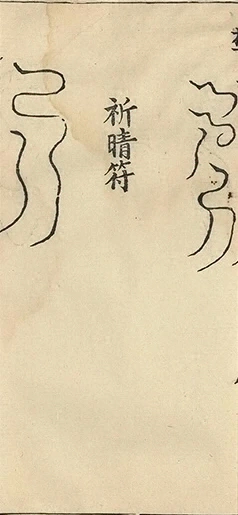 祈晴符